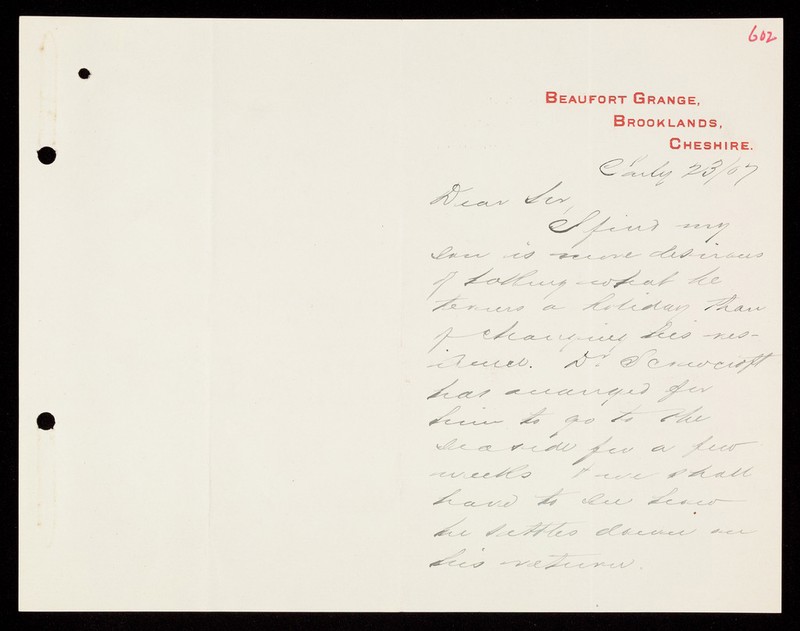 602
BEAUFORT GRANGE,
BROOKLANDS,
CHESHIRE.
July 23/07
Dear Sir,
I find my
son is more desirous
of
what he
terms a holiday than
of changing his res-
idence. Dr. Scowcroft
has arranged for
him to go to the
seaside for a few
weeks & we shall
have to see how
he settles down on
his return.